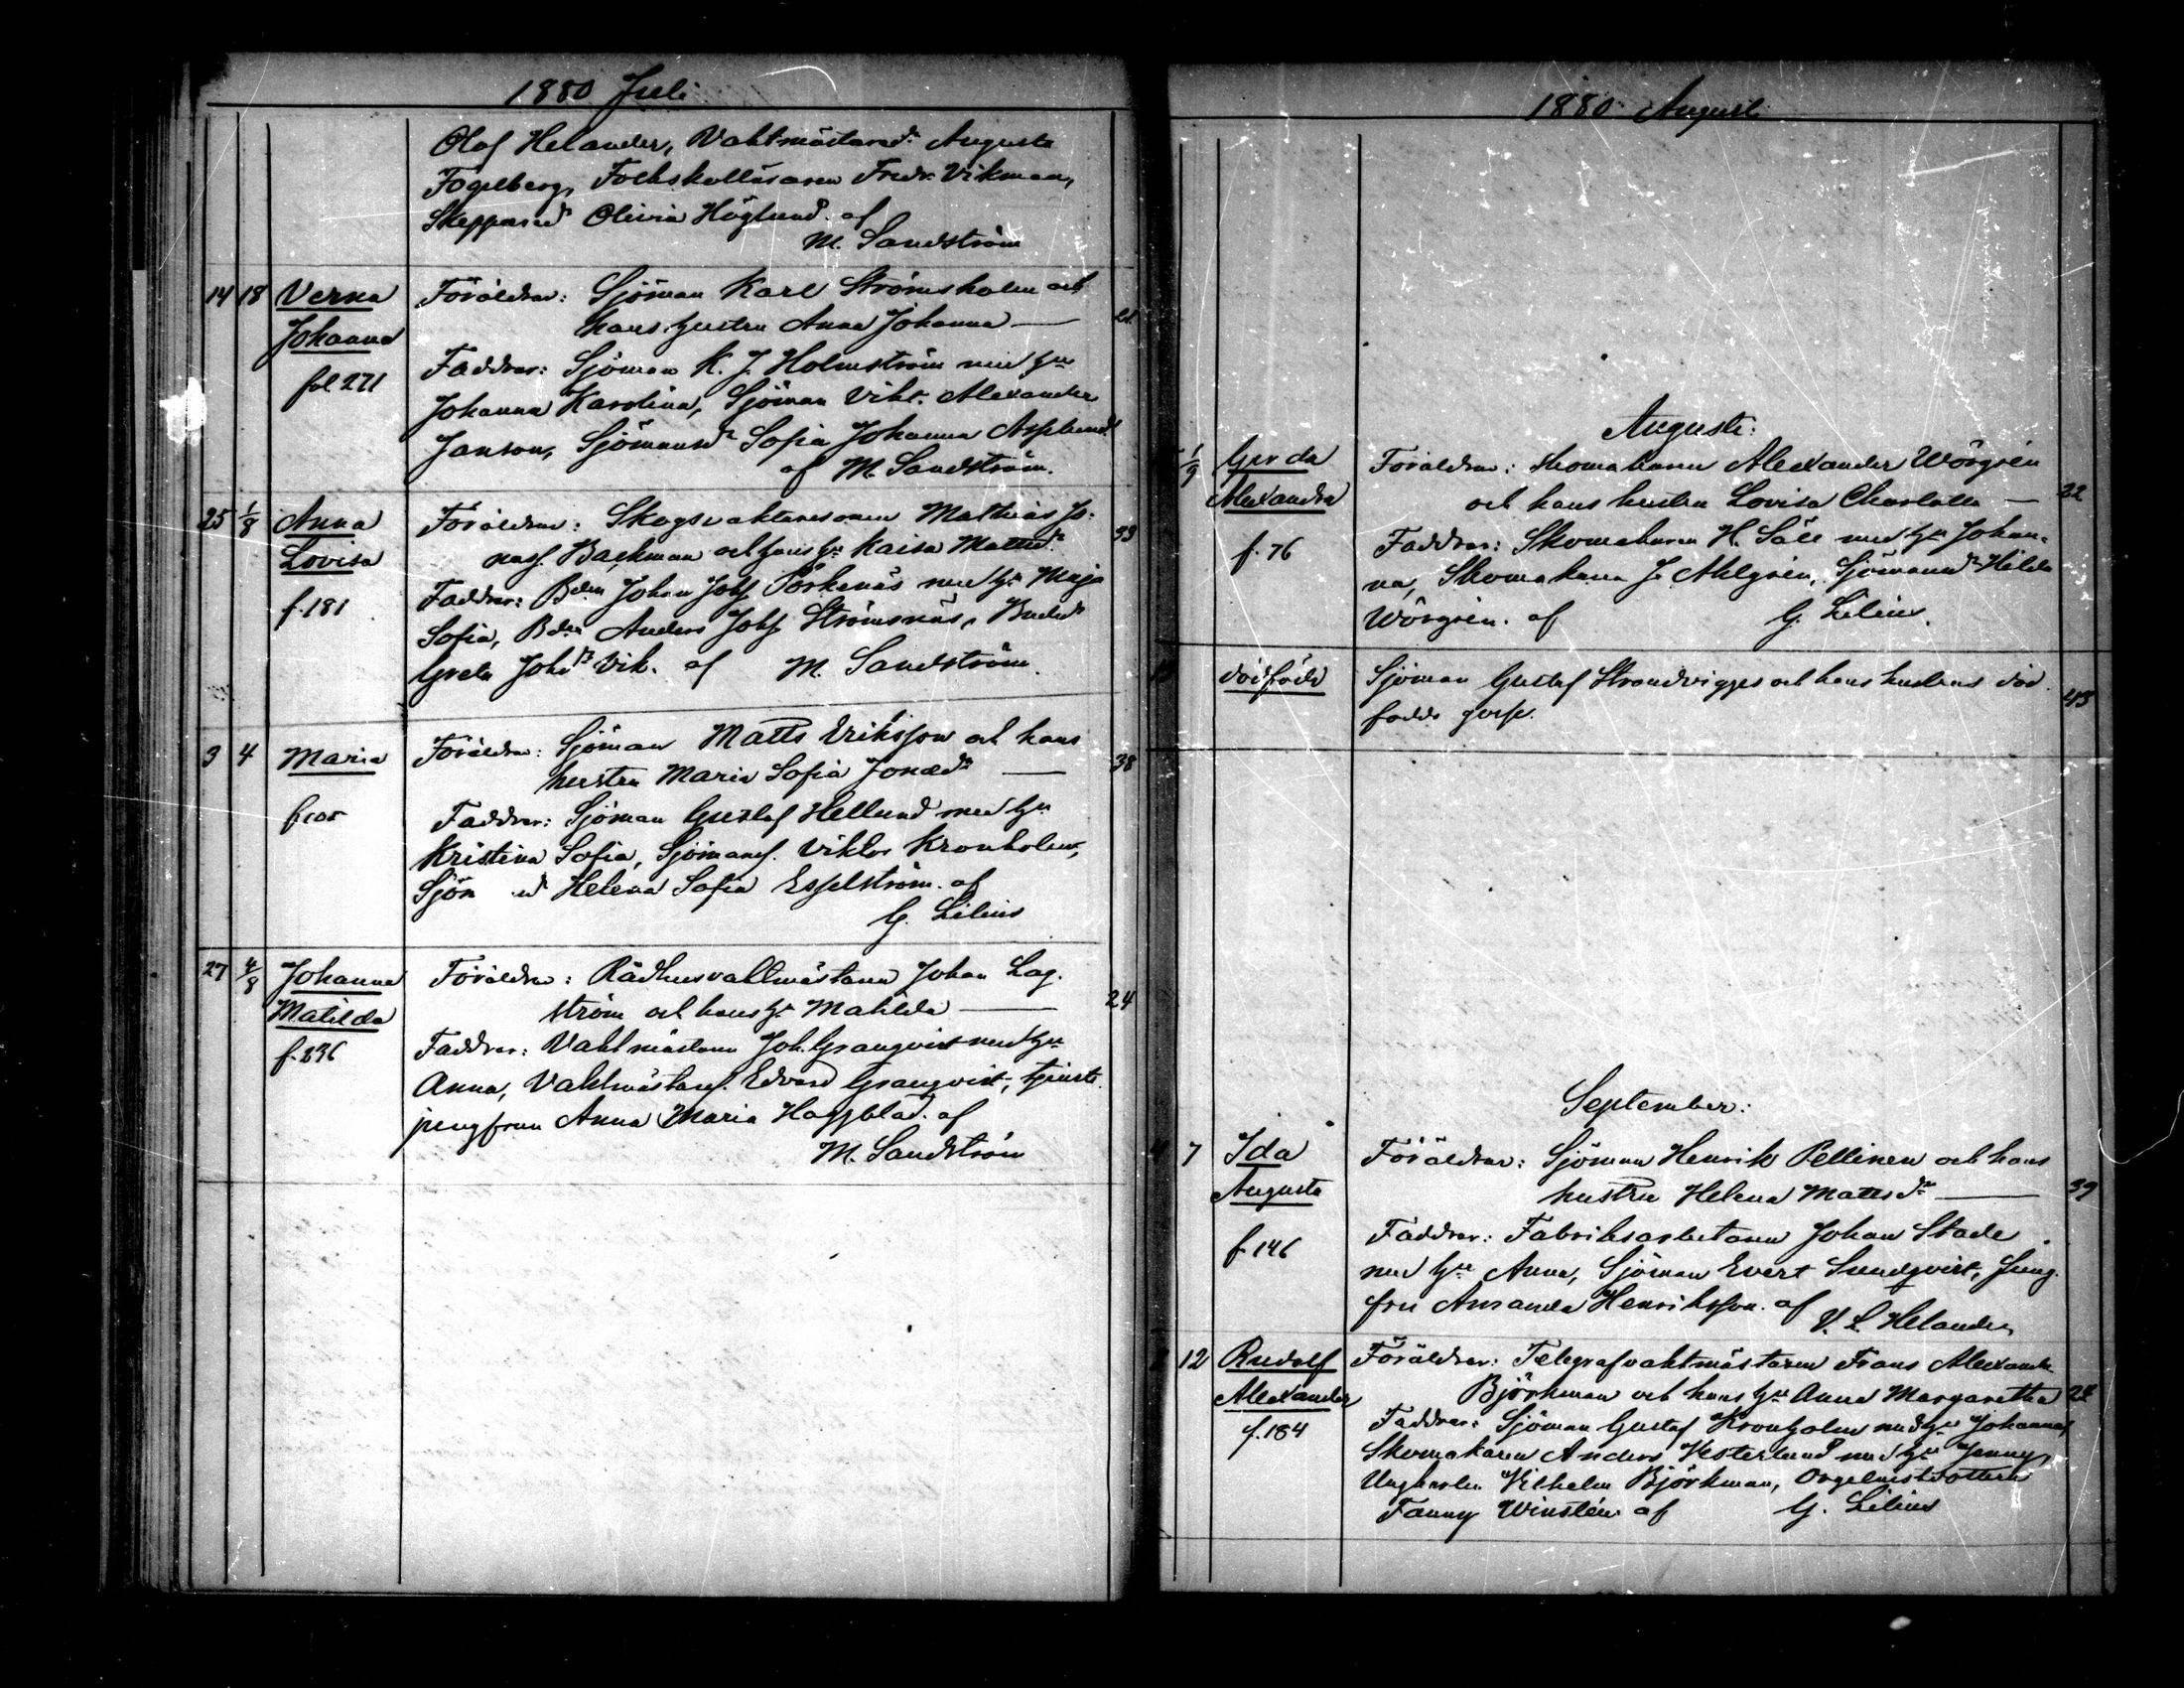 1880 Juli
Olof Helander, Vaktmästared. Augusta
Fogelberg, Folkskolläraren Fredr. Vikman,
Skeppared Olivia Höglund. af
M. Sandström
14 18 Verna Föräldrar: Sjöman Karl Strömsholm och
Johanna hans hustru Anna Johanna — 21
fol. 271 Faddrar: Sjöman K. J. Holmström med hu
Johanna Karolina, Sjöman Vikt. Alexander
Janson, Sjömansdr Sofia Johanna Asplund
af M. Sandström.
25 1/8 Anna Föräldrar: Skogsvaktaresonen Mathias Jo-
Lovisa nass. Backman och hans hu Kaisa Mattsdr 33
f. 181 Faddrar: Bden Johan Johss Pörkenäs med hu Maja
Sofia, Bden Anders Johss Strömsnäs,
Greta Johsdr Vik. af M. Sandström.
3 4 Maria Föräldrar: Sjöman Matts Eriksson och hans
hustru Maria Sofia Jonædr — 38
Faddrar: Sjöman Gustaf Hellund med hu
Kristina Sofia, Sjömans. Viktor Kronholm,
Sjön d Helena Sofia Esselström. af
G. Lilius
27 4/8 Johanna Föräldrar: Rådhusvaktmästaren Johan Lag-
Matilda ström och hans hu Matilda — 24
f. 236 Faddrar: Vaktmästaren Joh. Granqvist med hu
Anna, Vaktmästares. Edvard Granqvist, tjenste-
jungfrun Anna Maria Haggblad. af
M. Sandström
1880 Augusti
Augusti:
1/9 Gerda Föräldrar: Skomakaren Alexander Wörgren
Alexandra och hans hustru Lovisa Charlotta — 32
f. 76 Faddrar: Skomakaren H. Säll med hu Johan-
na, Skomakaren J. Ahlgren, Sjömansdr Hilda
Wörgren. af G. Lilius.
dödfödd Sjöman Gustaf Strandvigges och hans hustrus död-
födda gosse. 43
September:
4 7 Ida Föräldrar: Sjöman Henrik Pellinen och hans
Augusta hustru Helena Mattsdr — 39
f. 146 Faddrar: Fabriksarbetaren Johan Stade
med hu Anna, Sjöman Evert Sundqvist, Jung-
fru Amanda Henriksson. af V. L. Helander
12 Rudolf Föräldrar: Telegrafvaktmästaren Frans Alexander
Alexander Björkman och hans hu Anna Margaretha 24
f. 184 Faddrar: Sjöman Gustaf Kronholm med hu Johanna,
Skomakaren Anders Vesterlund med hu Jenny,
Ungkarlen Vilhelm Björkman, Orgelnistdottern
Fanny Winstén. af G. Lilius